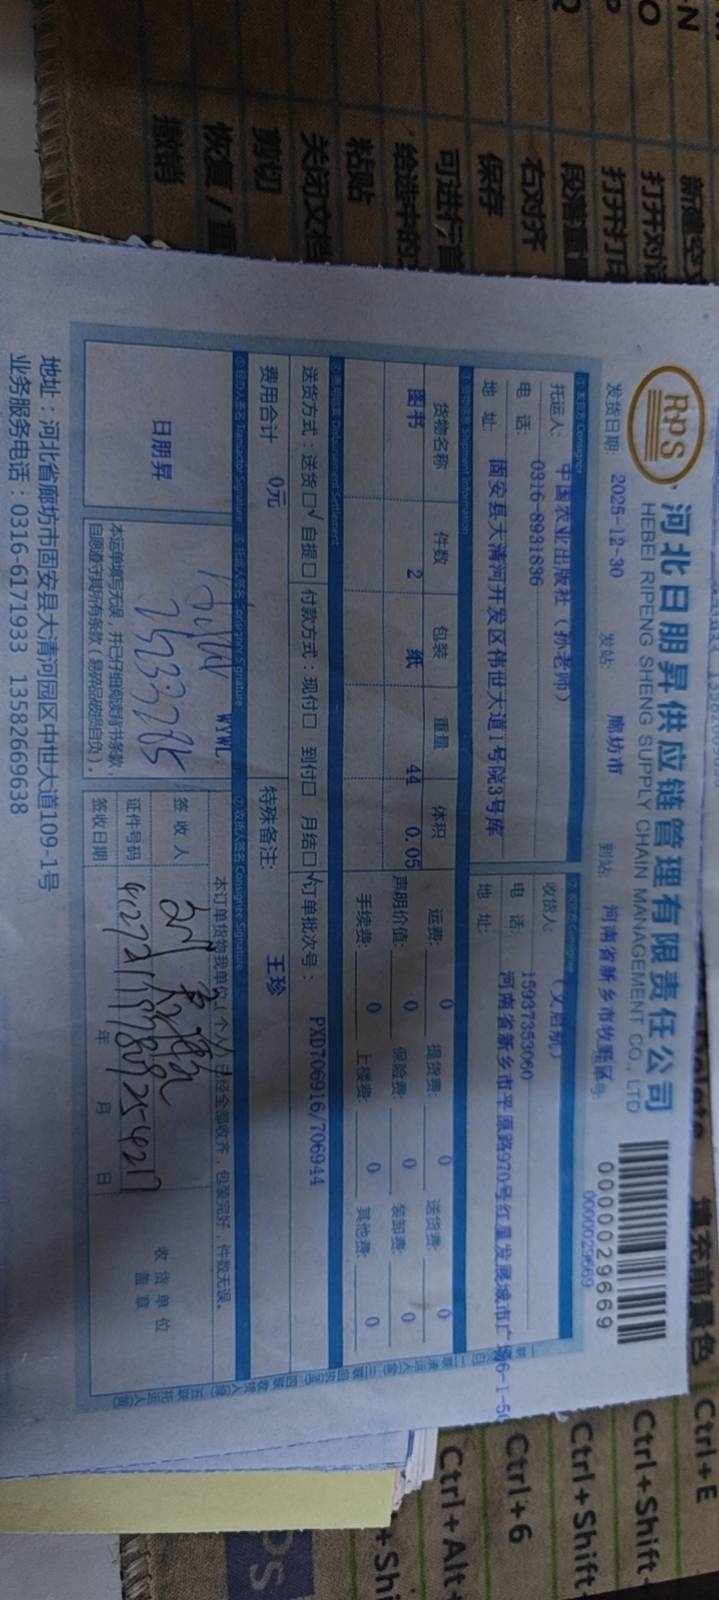 RPS
河北日朋昇供应链管理有限责任公司
HEBEI RIPENG SHENG SUPPLY CHAIN MANAGEMENT CO., LTD
0000029669
0000029669
发货日期: 2025-12-30 发站: 廊坊市 到站: 河南省新乡市牧野区
托运人: 中国农业出版社（孙老师）
电 话: 0316-8931836
地 址: 固安县大清河开发区伟世大道1号院3号库
收货人: （文启航）
电 话: 15937353060
地 址: 河南省新乡市平原路970号红星发展城市广场6-1-50
货物名称 件数 包装 重量 体积
图书 2 纸 44 0.05
运费: 0 提货费: 0 送货费: 0
声明价值: 0 保险费: 0 装卸费: 0
手续费: 0 上楼费: 0 其他费: 0
送货方式：送货☐√ 自提☐ 付款方式：现付☐ 到付☐ 月结☐√ 订单批次号： PXD706916/706944
费用合计 0元 特殊备注： 王珍
Transactor Signature
Consignor Signature
Consignee Signature
日朋昇
WYWL
本运单填写无误，并已仔细阅读背书条款，
自愿遵守其所有条款（易碎品破损自负）。
本订单货物我单位（个人）已经全部收齐，包装完好，件数无误。
签 收 人
证件号码
签收日期 年 月 日
收 货 单 位
盖 章
地址：河北省廊坊市固安县大清河园区中世大道109-1号
业务服务电话：0316-6171933 13582669638
撤销
恢复
剪切
关闭文档
粘贴
给选中的
可进行首
保存
右对齐
段落重
打开打印
打开对话
新建空
填充前景色
Ctrl+E
Ctrl+Shift+
Ctrl+Shift+
Ctrl+6
Ctrl+Alt+